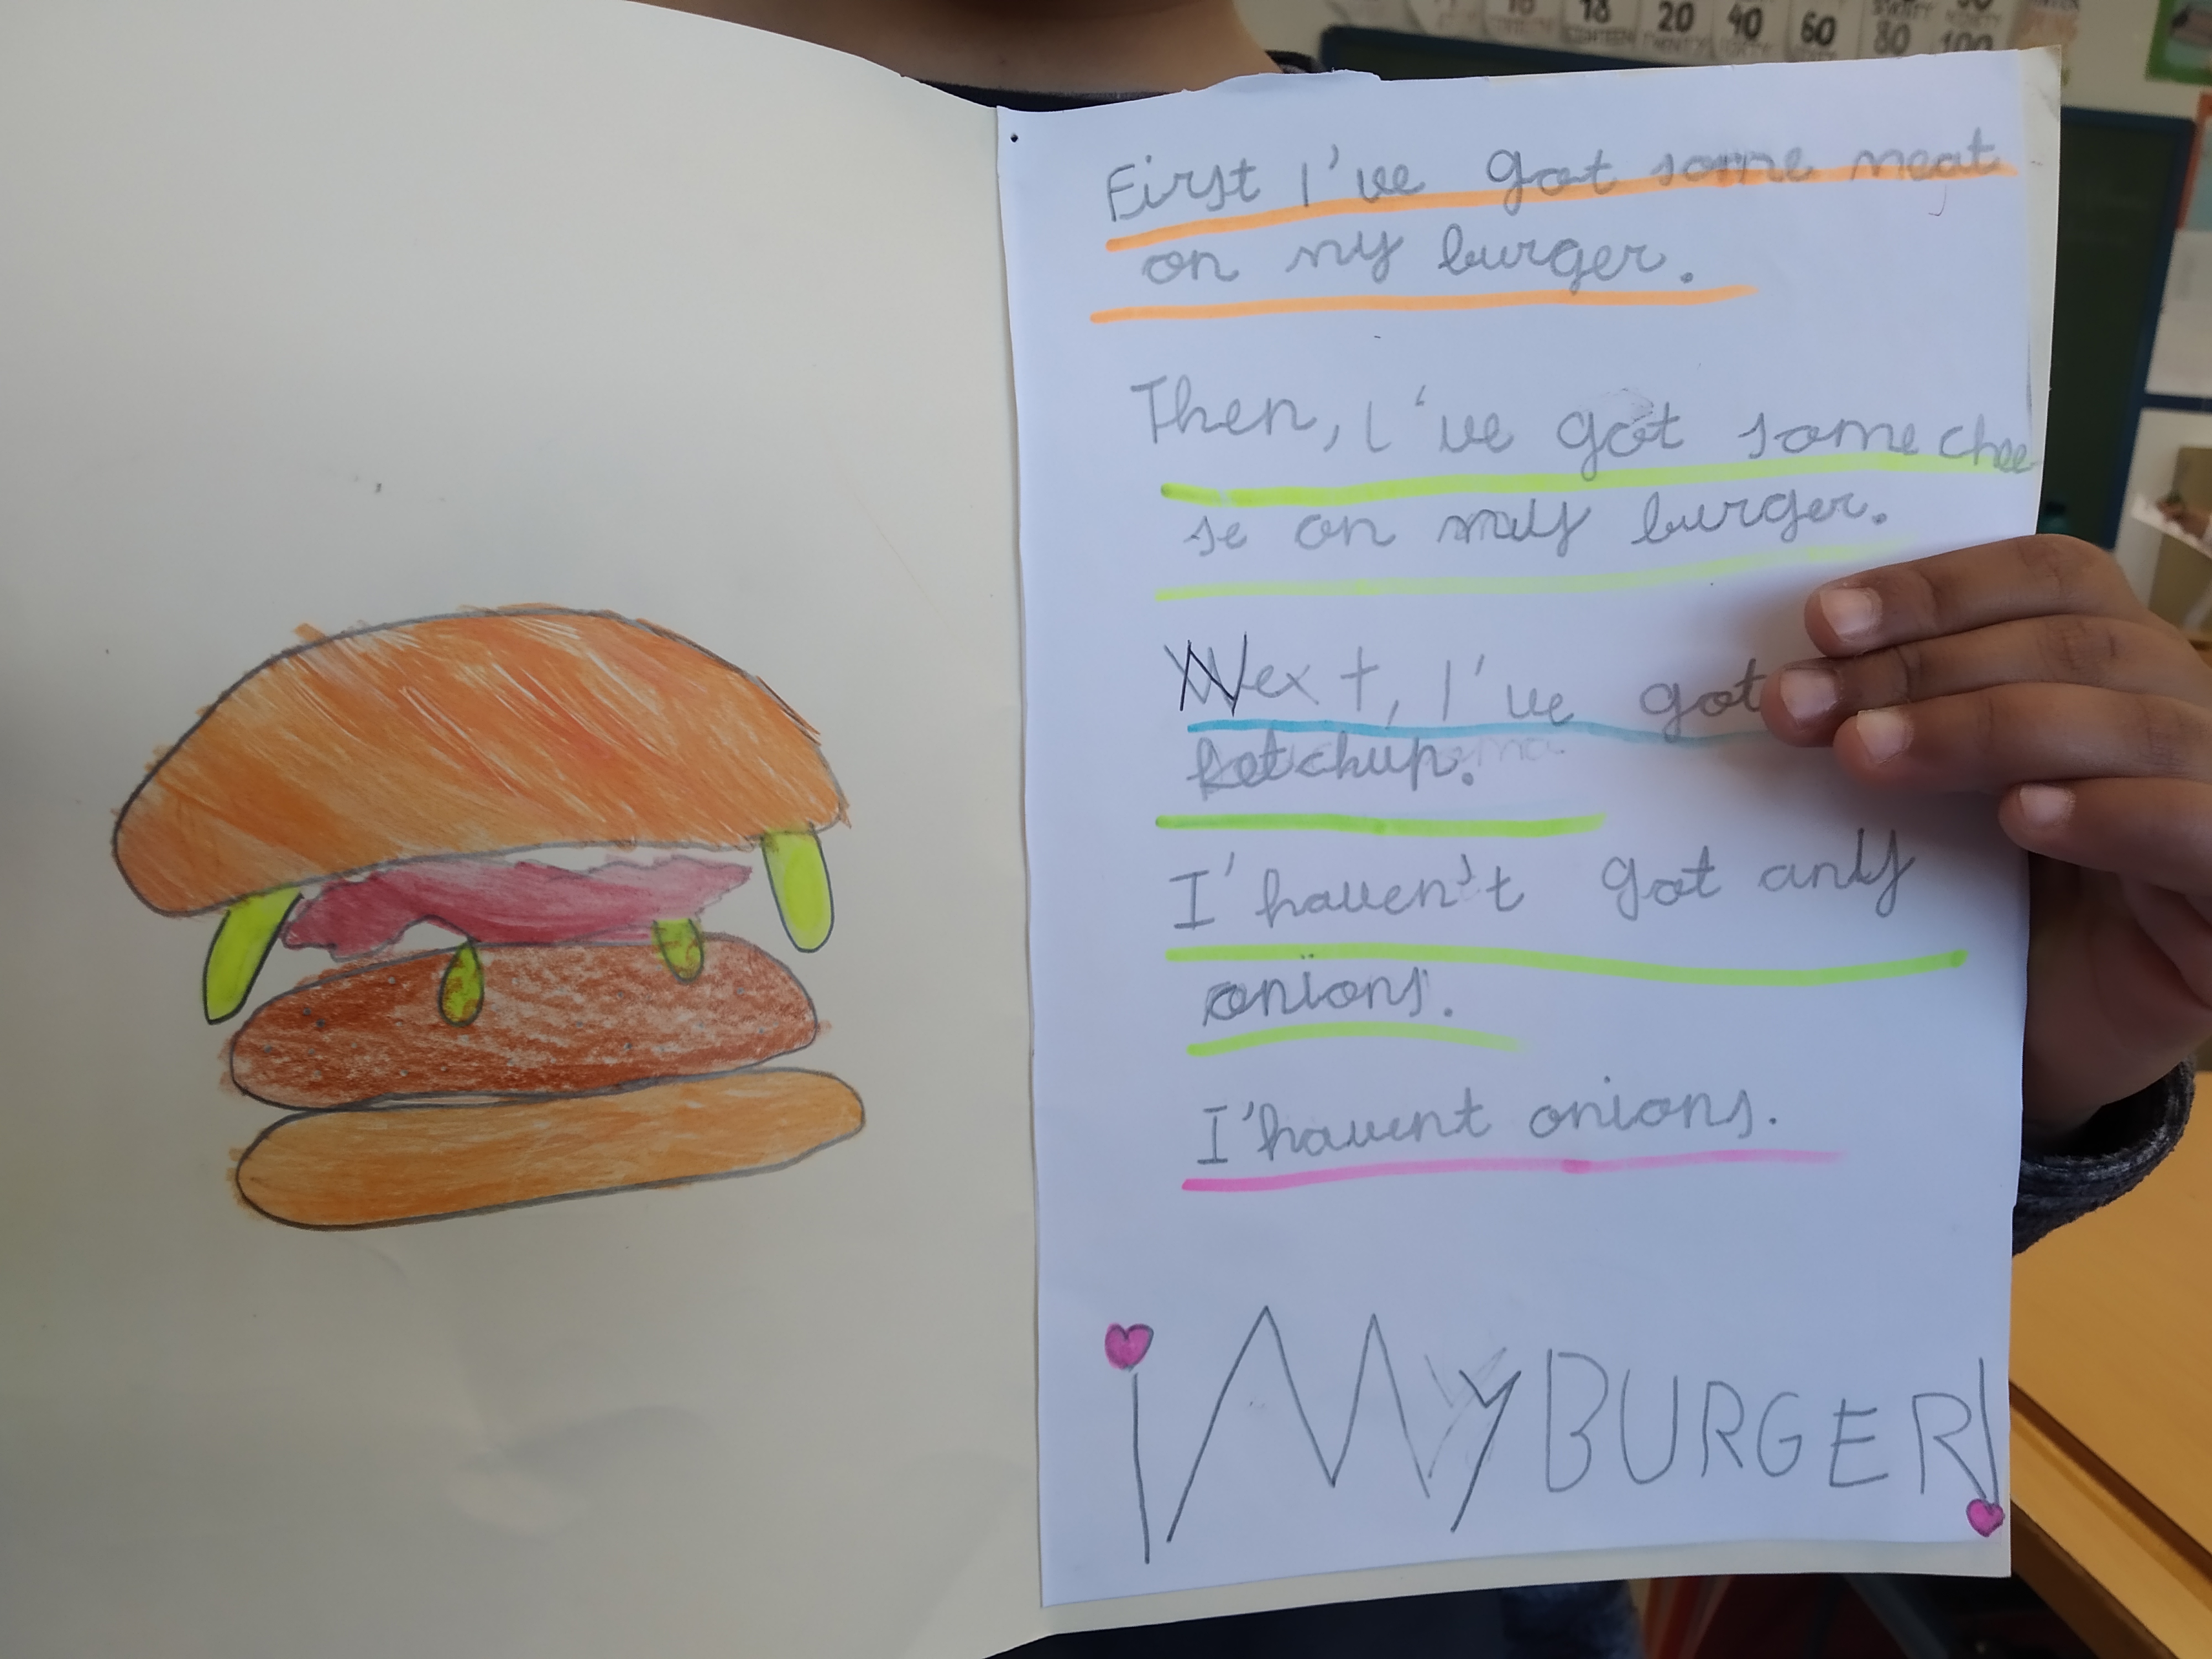 18
20
40
60
80
100
EIGHTEEN
TWENTY
First I've got some meat
on my burger.
Then, I've got some chee
se on my burger.
Next, I've got
ketchup.
I'haven't got any
onions.
I'havent onions.
¡My BURGER!